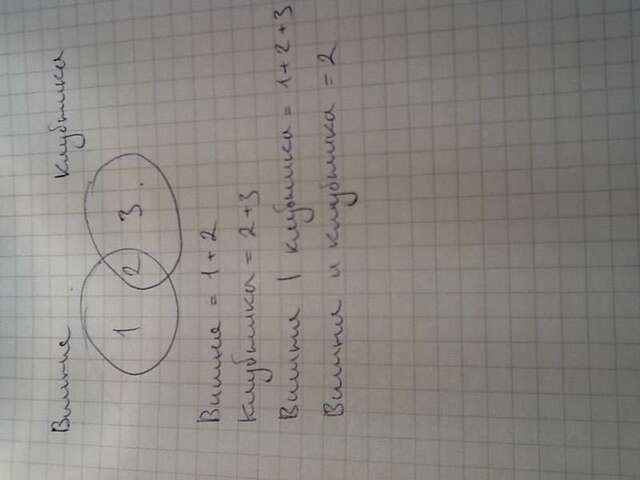 Вишня Клубника
1 2 3
Вишня = 1+2
Клубника = 2+3
Вишня | клубника = 1+2+3
Вишня и клубника = 2